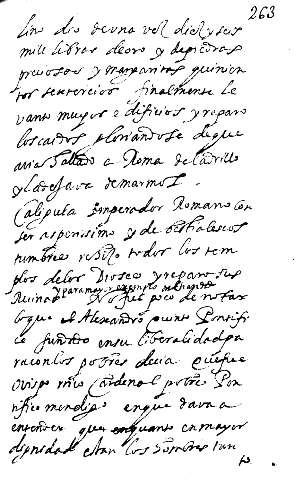 263
lino dio de una vez diez y seis
mill libras de oro y de piedras
preciosas y margaritas quinien
tos sextercios finalmente le
vanto muyos edificios y reparo
los caidos gloriandose de que
avia hallado a Roma de ladrillo
y la dejava de marmol.
Caligula Emperador Romano con
ser asperisimo y de bestiales cos
tumbres todos los tem
plos de los Dioses y reparo sus
Ruinas No fue poco de notar
lo que el Alexandro quinto Pontifi
ce fundado en su liberalidad pa
ra con los pobres decia que fue
Ovispo rrico Cardenal pobre Pon
tifice mendigo en que dava a
entender que en quanto en mayor
dignidad estan los hombres tan
to